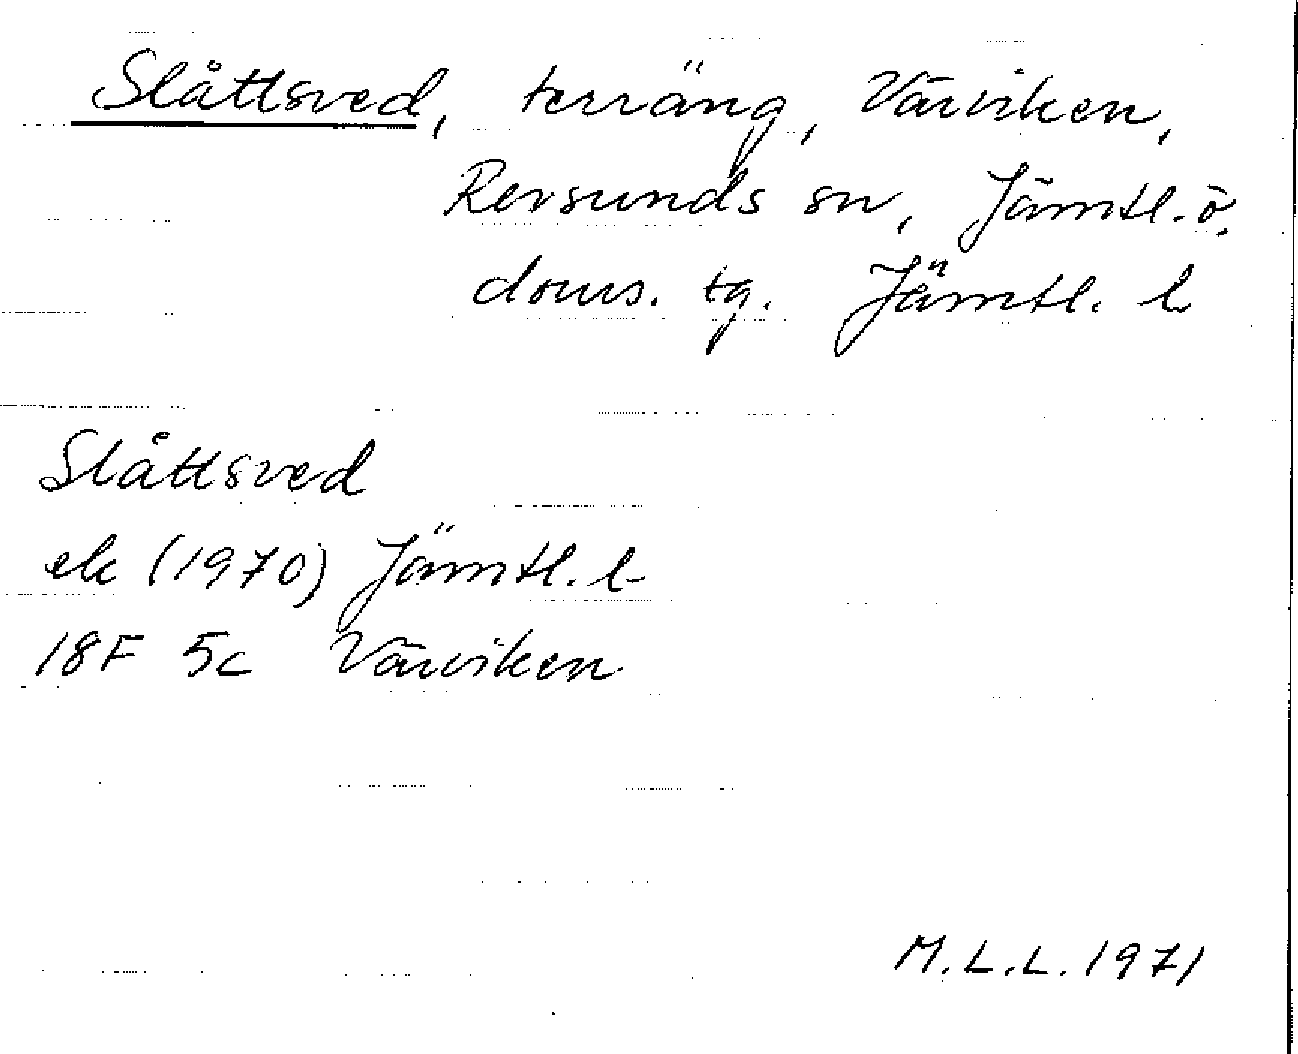 Slåttsved, terräng, Väviken,
Revsunds sn, Jämtl. ö.
doms. tg. Jämtl. l
Slåttsved
ek (1970) Jämtl. l
18F 5c Väviken
M.L.L. 1971